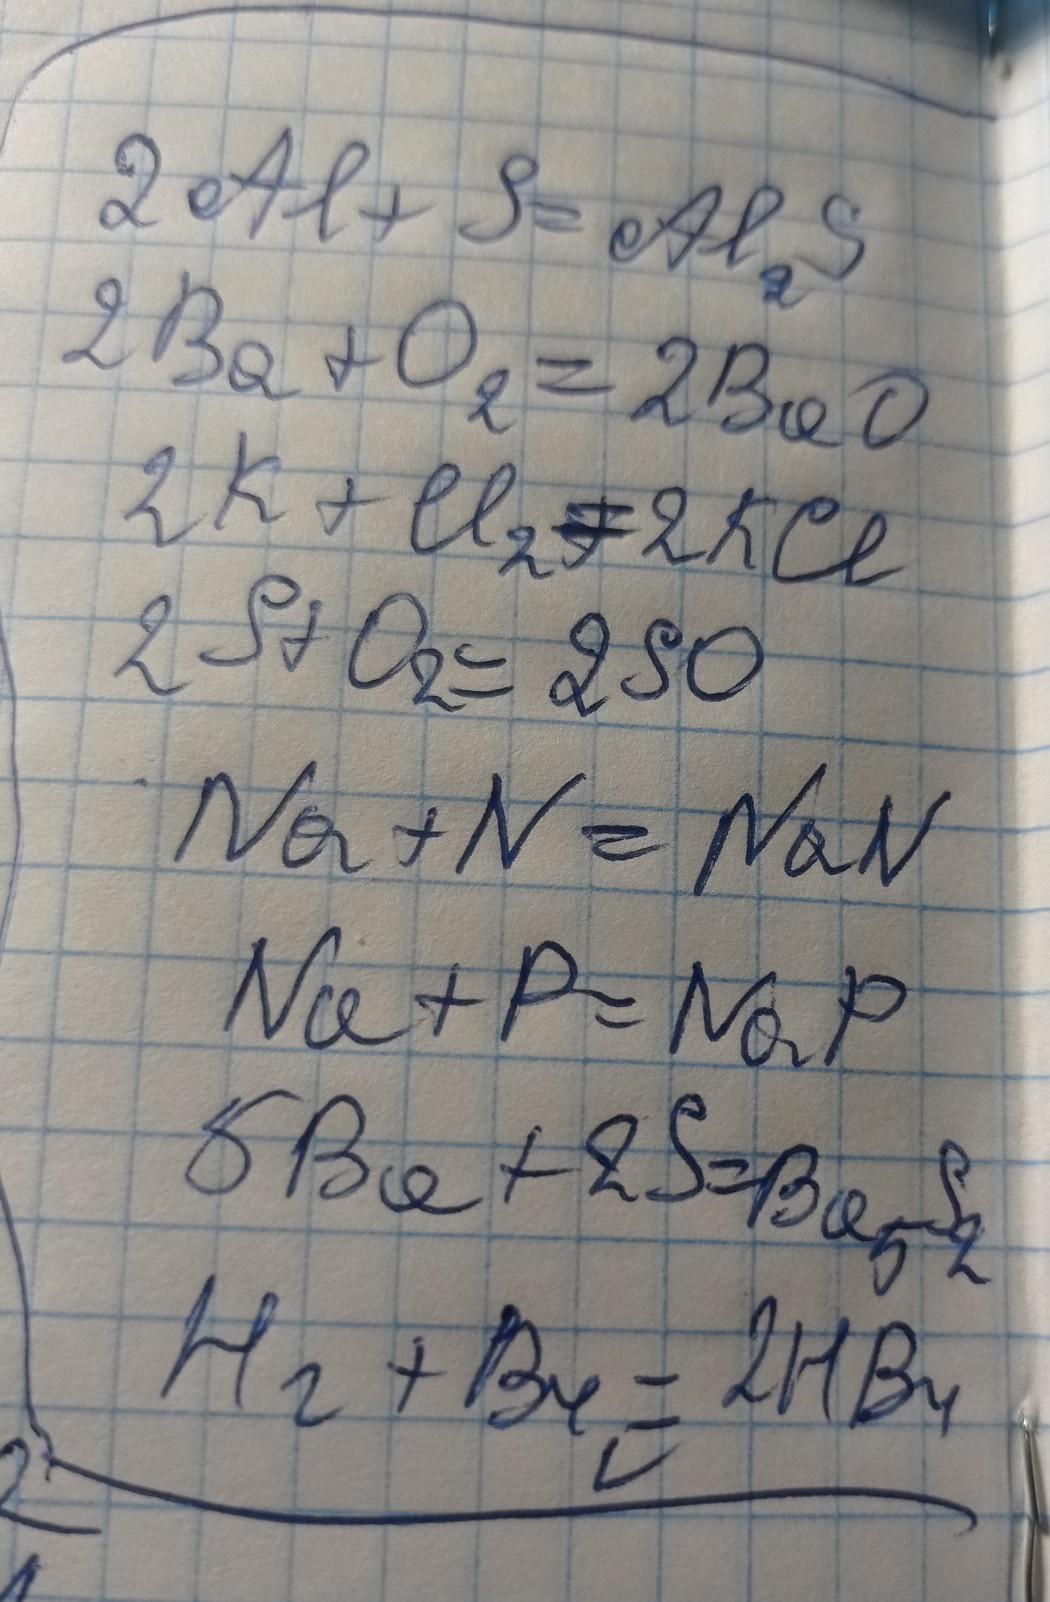 2Al + S = Al₂S
2Ba + O₂ = 2BaO
2K + Cl₂ = 2KCl
2S + O₂ = 2SO
Na + N = NaN
Na + P = NaP
5Ba + 2S = Ba₅S₂
H₂ + Br₂ = 2HBr
2
1